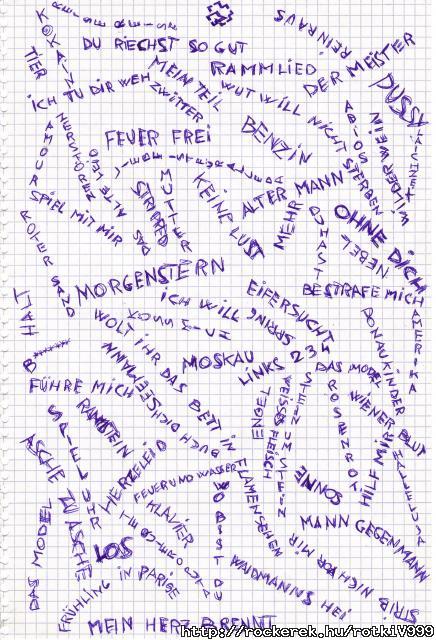 REISE REISE
REIN RAUS
KOKAIN
DU RIECHST SO GUT
DER MEISTER
TIER
MEIN TEIL
RAMMLIED
PUSSY
ICH TU DIR WEH
ZWITTER
WUT WILL NICHT STERBEN
ADIOS
LAICHZEIT
AMOUR
ZERSTÖREN
FEUER FREI
BENZIN
WILDER WEIN
ALTE LEID
SPIEL MIT MIR
DAS
STRIPPED
MUTTER
KEINE LUST
ALTER MANN
MEHR
DU HAST
OHNE DICH
NEBEL
ROTER SAND
MORGENSTERN
ICH WILL
EIFERSUCHT
BESTRAFE MICH
AMERIKA
HALT
KÜSS MICH
SPRING
DONAUKINDER
WOLLT IHR DAS BETT IN FLAMMEN SEHEN
MOSKAU
LINKS 234
B********
SEEMANN
DAS MODEL
FÜHRE MICH
BÜCK DICH
ENGEL
WEISSES FLEISCH
STEIN UM STEIN
ROSENROT
WIENER BLUT
RAMMSTEIN
SPIELUHR
HERZELEID
HILF MIR
HALLELUJA
ASCHE ZU ASCHE
FEUER UND WASSER
WO BIST DU
SONNE
KLAVIER
MANN GEGEN MANN
DAS MODEL
LOS
STIRB NICHT VOR MIR
FRÜHLING IN PARIS
WAIDMANNS HEIL
MEIN HERZ BRENNT
http://rockerek.hu/rotkiV999